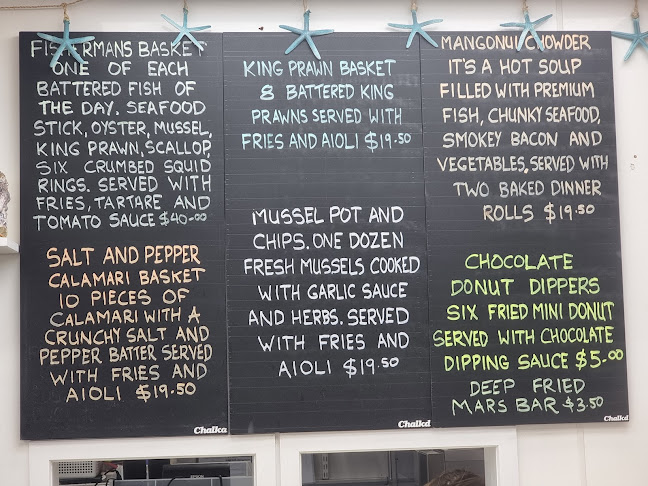 FISHERMANS BASKET
ONE OF EACH
BATTERED FISH OF
THE DAY. SEAFOOD
STICK, OYSTER, MUSSEL,
KING PRAWN, SCALLOP,
SIX CRUMBED SQUID
RINGS. SERVED WITH
FRIES, TARTARE AND
TOMATO SAUCE $40-00
SALT AND PEPPER
CALAMARI BASKET
10 PIECES OF
CALAMARI WITH A
CRUNCHY SALT AND
PEPPER BATTER SERVED
WITH FRIES AND
AIOLI $19.50
Chalkd
KING PRAWN BASKET
8 BATTERED KING
PRAWNS SERVED WITH
FRIES AND AIOLI $19.50
MUSSEL POT AND
CHIPS. ONE DOZEN
FRESH MUSSELS COOKED
WITH GARLIC SAUCE
AND HERBS. SERVED
WITH FRIES AND
AIOLI $19.50
Chalkd
MANGONUI CHOWDER
IT'S A HOT SOUP
FILLED WITH PREMIUM
FISH, CHUNKY SEAFOOD,
SMOKEY BACON AND
VEGETABLES, SERVED WITH
TWO BAKED DINNER
ROLLS $19.50
CHOCOLATE
DONUT DIPPERS
SIX FRIED MINI DONUT
SERVED WITH CHOCOLATE
DIPPING SAUCE $5-00
DEEP FRIED
MARS BAR $3.50
Chalkd